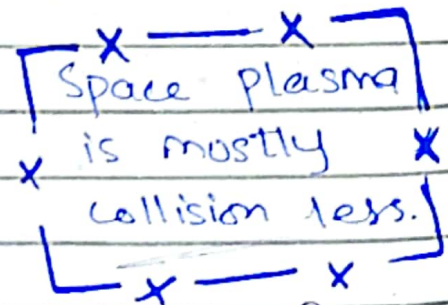 Space plasma
is mostly
collision less.